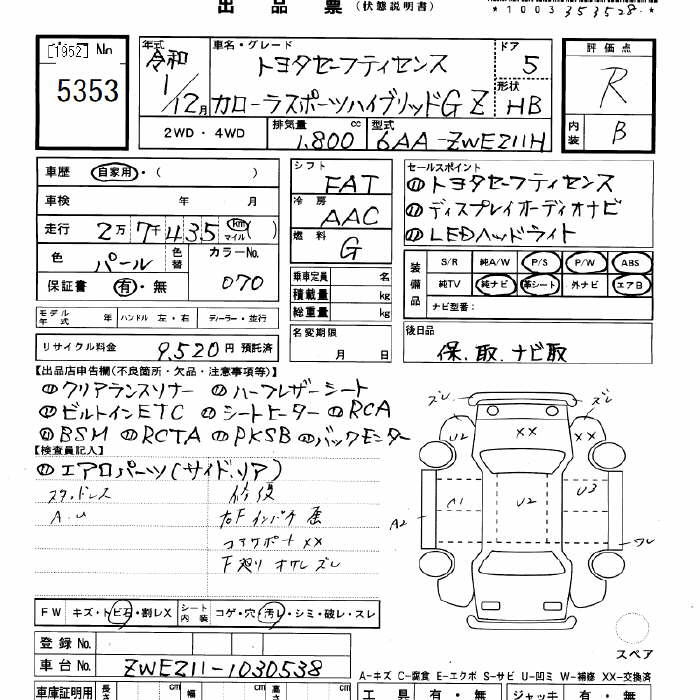 出品票 (状態説明書)
*1003353528*
[1952] No 5353
年式 令和 1/12月
車名・グレード トヨタセーフティセンス
カローラスポーツハイブリッドG Z
ドア 5
形状 HB
評価点 R
内装 B
2WD・4WD 排気量 1,800 cc 型式 6AA-ZWE211H
車歴 自家用・( )
車検 年 月
走行 2万7千435 km マイル ( )
色 パール 色替 カラーNo. 070
保証書 有・無
シフト FAT
冷房 AAC
燃料 G
乗車定員 名
積載量 kg
総重量 kg
セールスポイント
⑪トヨタセーフティセンス
⑪ディスプレイオーディオナビ
⑪LEDヘッドライト
装備品 S/R 純A/W P/S P/W ABS
純TV 純ナビ 革シート 外ナビ エアB
ナビ型番:
モデル年式 年 ハンドル 左・右 ディーラー・並行
リサイクル料金 9,520円 預託済
名変期限 月 日
後日品 保、取、ナビ取
【出品店申告欄(不良箇所・欠品・注意事項等)】
⑪クリアランスソナー ⑪ハーフレザーシート
⑪ビルトインETC ⑪シートヒーター ⑪RCA
⑪BSM ⑪RCTA ⑪PKSB ⑪バックモニター
【検査員記入】
⑪エアロパーツ(サイド、リア)
スタッドレス 修復
A.U 右Fインパネ
コアサポート XX
F廻り ズレ
ズレ ズレ
U2 XX XX
A2 C1 U2 U3 ワレ
スペア
FW キズ・トビ石・割レX シート内装 コゲ・穴・汚レ・シミ・破レ・スレ
登録No.
車台No. ZWE211-1030538
A-キズ C-腐食 E-エクボ S-サビ U-凹ミ W-補修 XX-交換済
車庫証明用 長さ cm 幅 cm 高さ cm
工具 有・無 ジャッキ 有・無